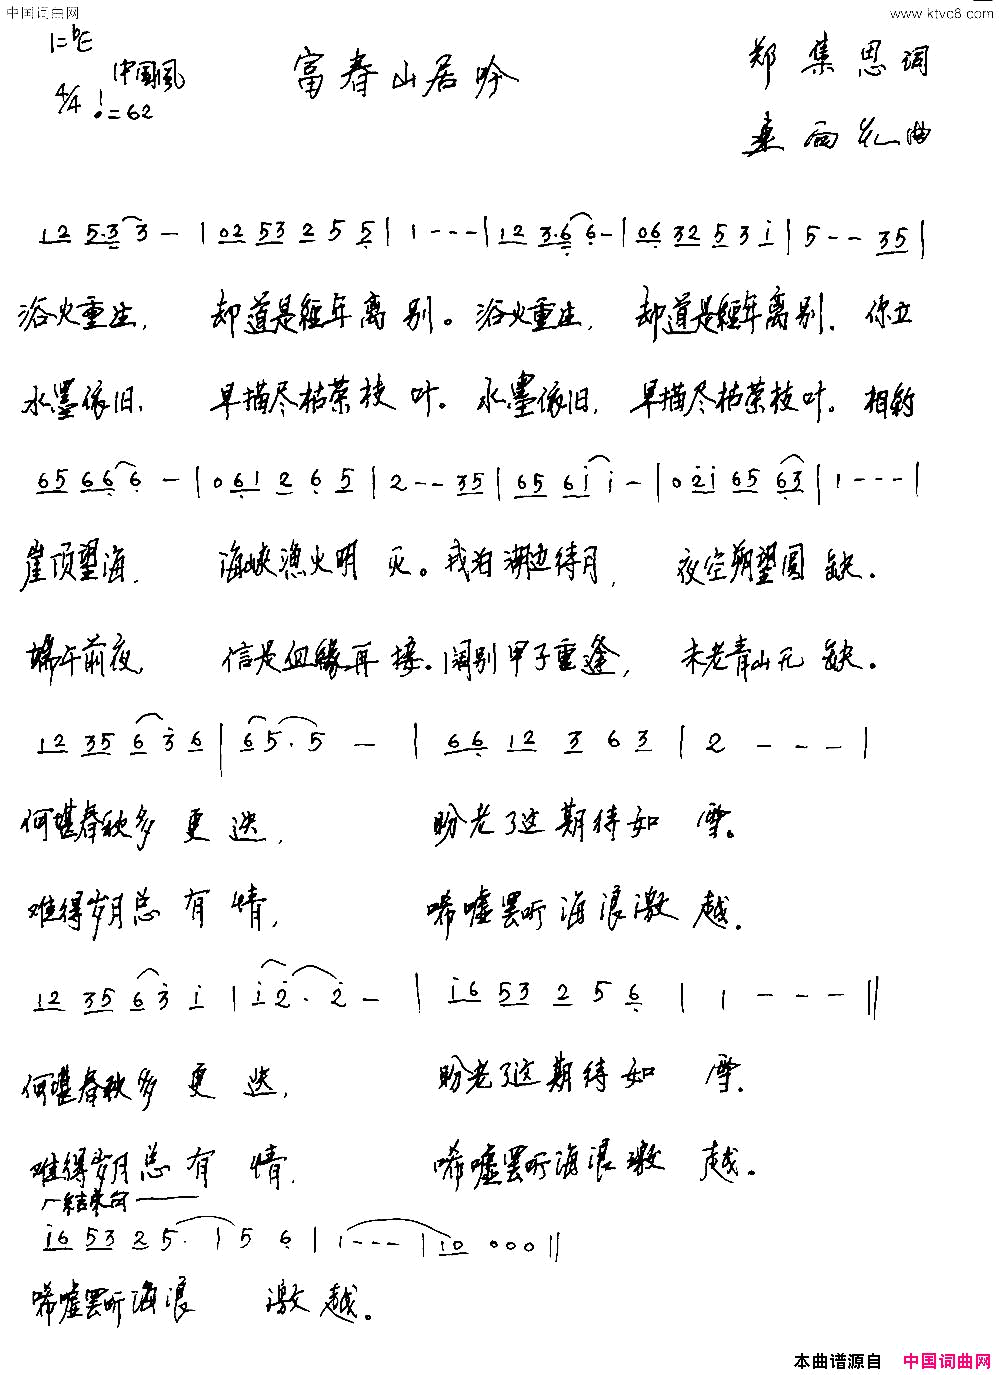 中国词曲网
www.ktvc8.com
1=♭E
4/4 ♩=62
中国风
富春山居吟
郑集恩词
桑雨花曲
12 5·3 3 - | 02 53 2 5 5 | 1 - - - | 12 3·6 6 - | 06 32 5 3 i | 5 - - 35 |
浴火重生, 却道是經年离别。浴火重生, 却道是經年离别. 你立
水墨依旧, 早描尽枯荣枝叶。水墨依旧, 早描尽枯荣枝叶。相约
65 66 6 - | 0 61 2 6 5 | 2 - - 35 | 65 6i i - | 0 2i 65 63 | 1 - - - |
崖顶望海, 海峡渔火明灭。我泊湖边待月, 夜空朔望圆缺.
端午前夜, 信是血緣再接. 阔别甲子重逢, 未老青山无缺.
12 35 6 3 6 | 6 5· 5 - | 66 12 3 6 3 | 2 - - - |
何堪春秋多更迭, 盼老了这期待如雪。
难得岁月总有情, 唏嘘罢听海浪激越.
12 35 6 3 i | i 2· 2 - | i6 53 2 5 6 | 1 - - - ||
何堪春秋多更迭, 盼老了这期待如雪.
难得岁月总有情. 唏嘘罢听海浪激越。
结束句
i6 53 2 5· | 5 6 | 1 - - - | 10 0 0 0 ||
唏嘘罢听海浪激越。
本曲谱源自 中国词曲网